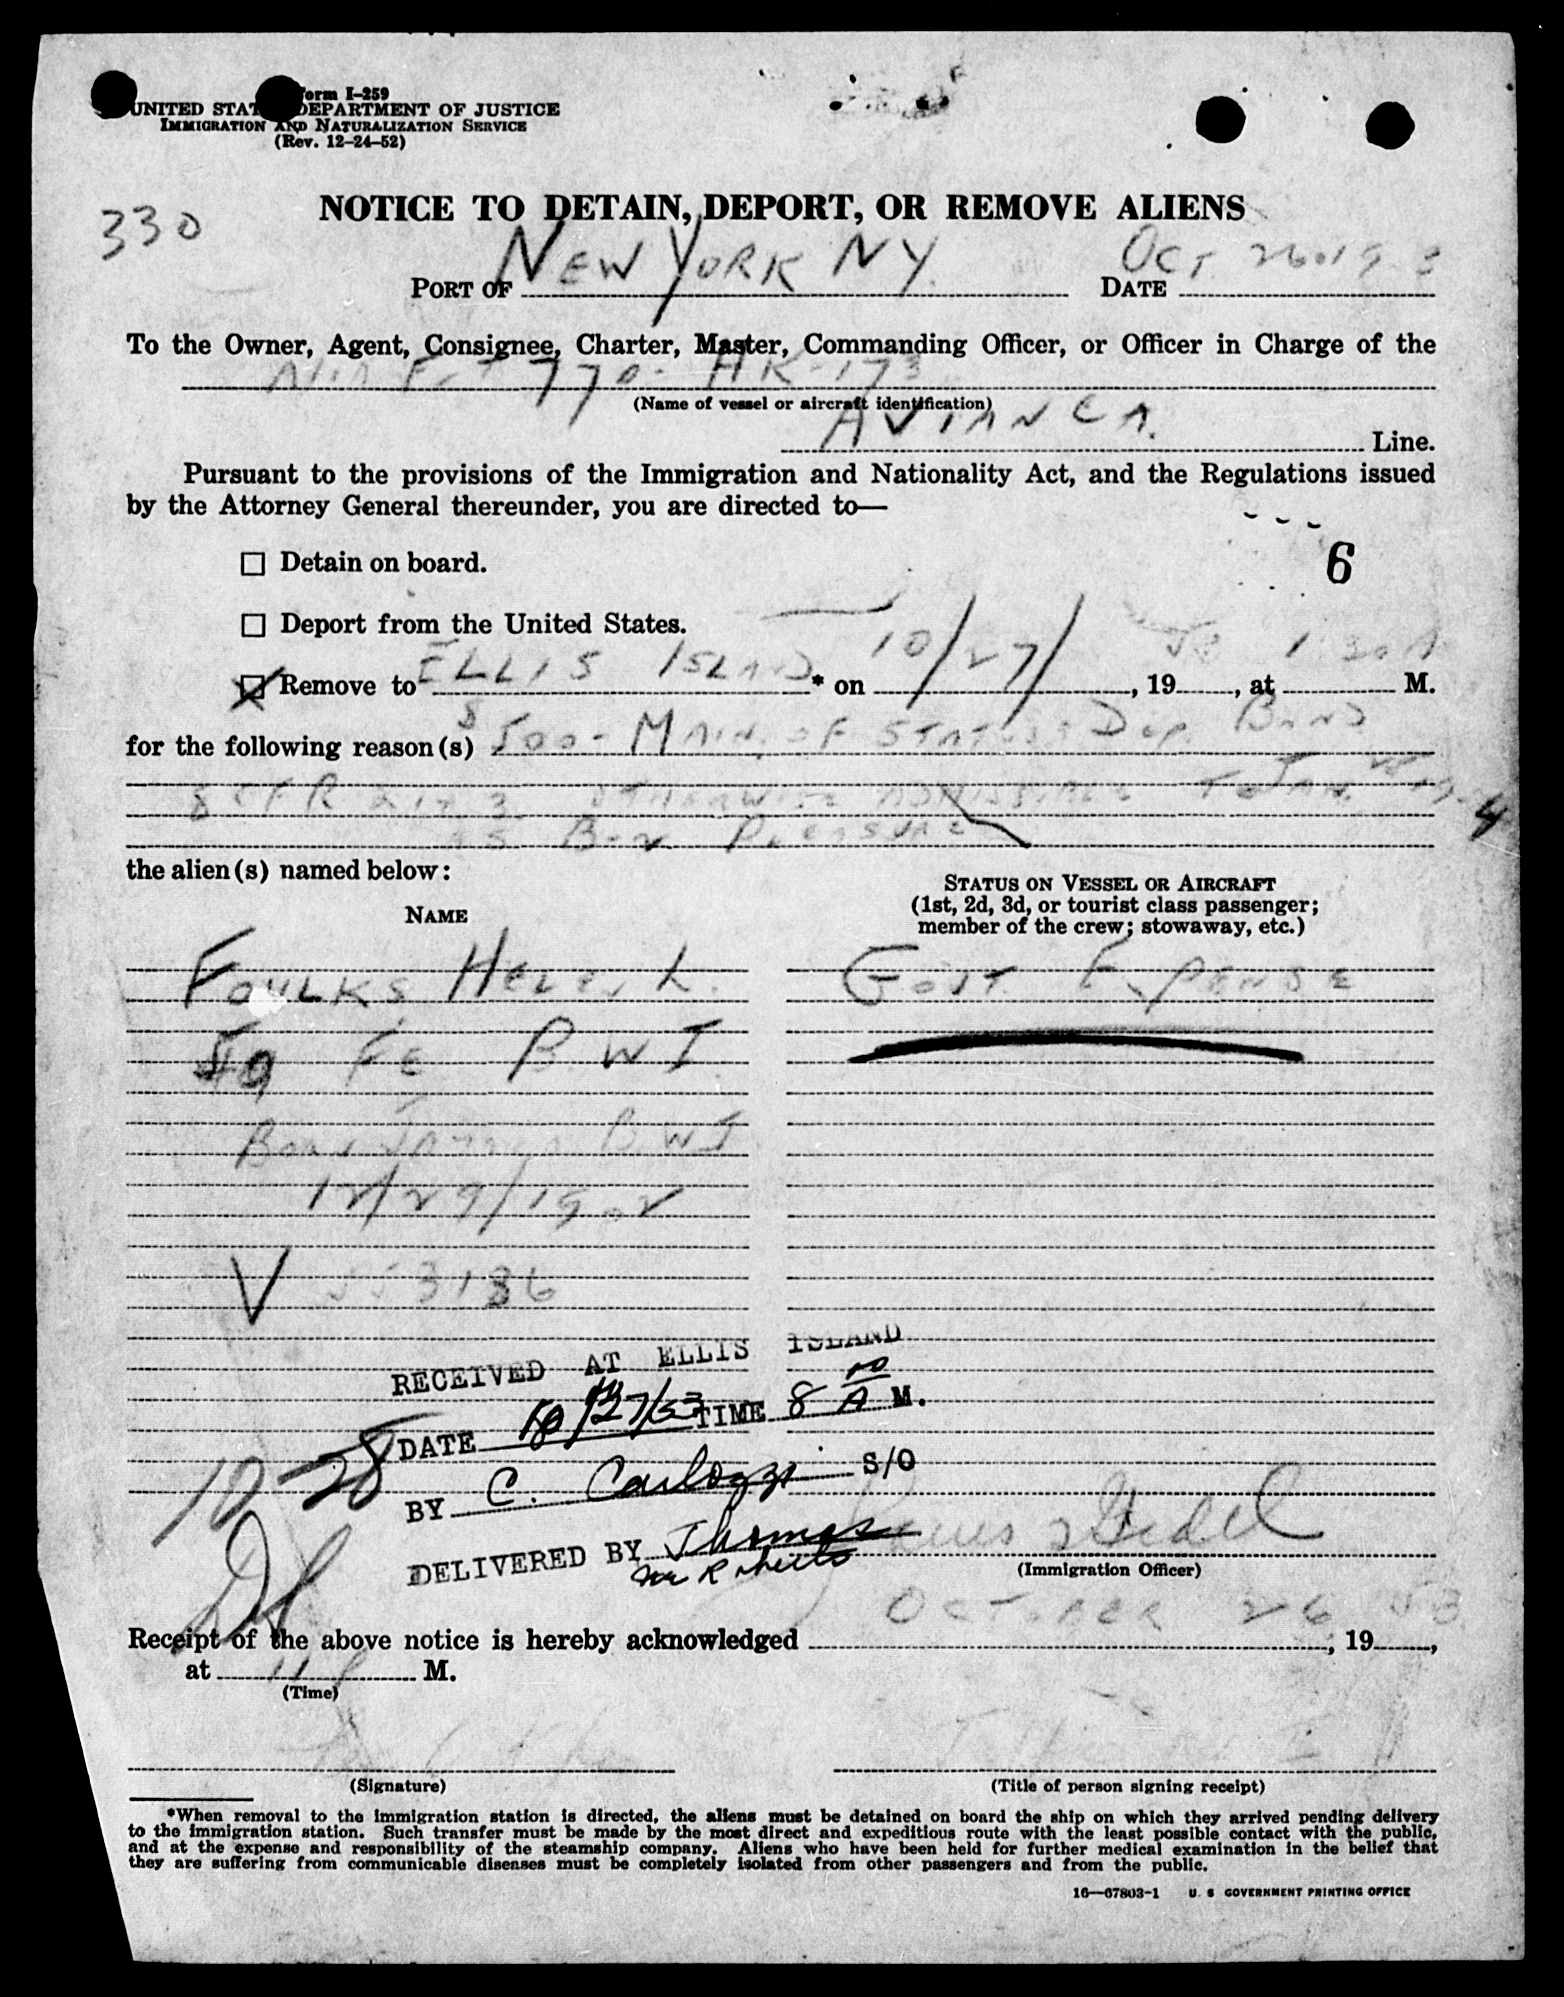 Form I-259
UNITED STATES DEPARTMENT OF JUSTICE
IMMIGRATION AND NATURALIZATION SERVICE
(Rev. 12-24-52)
330
NOTICE TO DETAIN, DEPORT, OR REMOVE ALIENS
PORT OF NEW YORK NY. DATE OCT 26 19 3
To the Owner, Agent, Consignee, Charter, Master, Commanding Officer, or Officer in Charge of the
770 - HK-173
(Name of vessel or aircraft identification)
AVIANCA. Line.
Pursuant to the provisions of the Immigration and Nationality Act, and the Regulations issued
by the Attorney General thereunder, you are directed to—
☐ Detain on board.
6
☐ Deport from the United States.
☒ Remove to ELLIS ISLAND * on 10/27/, 19 53, at 1 30 A M.
for the following reason(s) $500 - MAIN. OF STATUS DEP. BOND
8 CFR OTHERWISE ADMISSIBLE TO JAN.
4
AS B-2 PLEASURE
the alien(s) named below:
STATUS ON VESSEL OR AIRCRAFT
(1st, 2d, 3d, or tourist class passenger;
member of the crew; stowaway, etc.)
NAME
FOULKS HELEN L. GOVT. EXPENSE
FE B.W.I.
BORN B.W.I
12/29/1902
V 553186
RECEIVED AT ELLIS ISLAND
DATE 10/27/53 TIME 8 00 A M.
BY C. Carlozzi S/O
10-28
DELIVERED BY Thomas
Mc Roberts
(Immigration Officer)
OCTOBER 26 53
Receipt of the above notice is hereby acknowledged , 19 ,
at 11 P M.
(Time)
(Signature) (Title of person signing receipt)
*When removal to the immigration station is directed, the aliens must be detained on board the ship on which they arrived pending delivery
to the immigration station. Such transfer must be made by the most direct and expeditious route with the least possible contact with the public,
and at the expense and responsibility of the steamship company. Aliens who have been held for further medical examination in the belief that
they are suffering from communicable diseases must be completely isolated from other passengers and from the public.
16—67803-1 U. S. GOVERNMENT PRINTING OFFICE